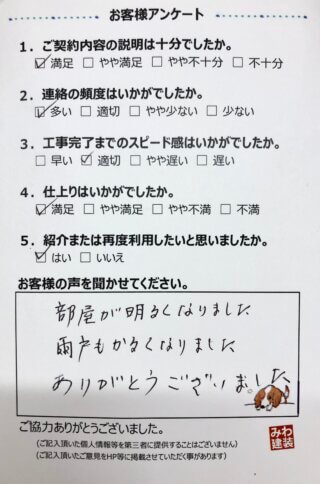 お客様アンケート
1．ご契約内容の説明は十分でしたか。
☑ 満足 □ やや満足 □ やや不十分 □ 不十分
2．連絡の頻度はいかがでしたか。
☑ 多い □ 適切 □ やや少ない □ 少ない
3．工事完了までのスピード感はいかがでしたか。
□ 早い ☑ 適切 □ やや遅い □ 遅い
4．仕上りはいかがでしたか。
☑ 満足 □ やや満足 □ やや不満 □ 不満
5．紹介または再度利用したいと思いましたか。
☑ はい □ いいえ
お客様の声を聞かせてください。
部屋が明るくなりました
雨戸もかるくなりました
ありがとうございました
ご協力ありがとうございました。
（ご記入頂いた個人情報等を第三者に提供することはございません）
（ご記入頂いたご意見をHP等に掲載させていただく事があります）
みわ
建装